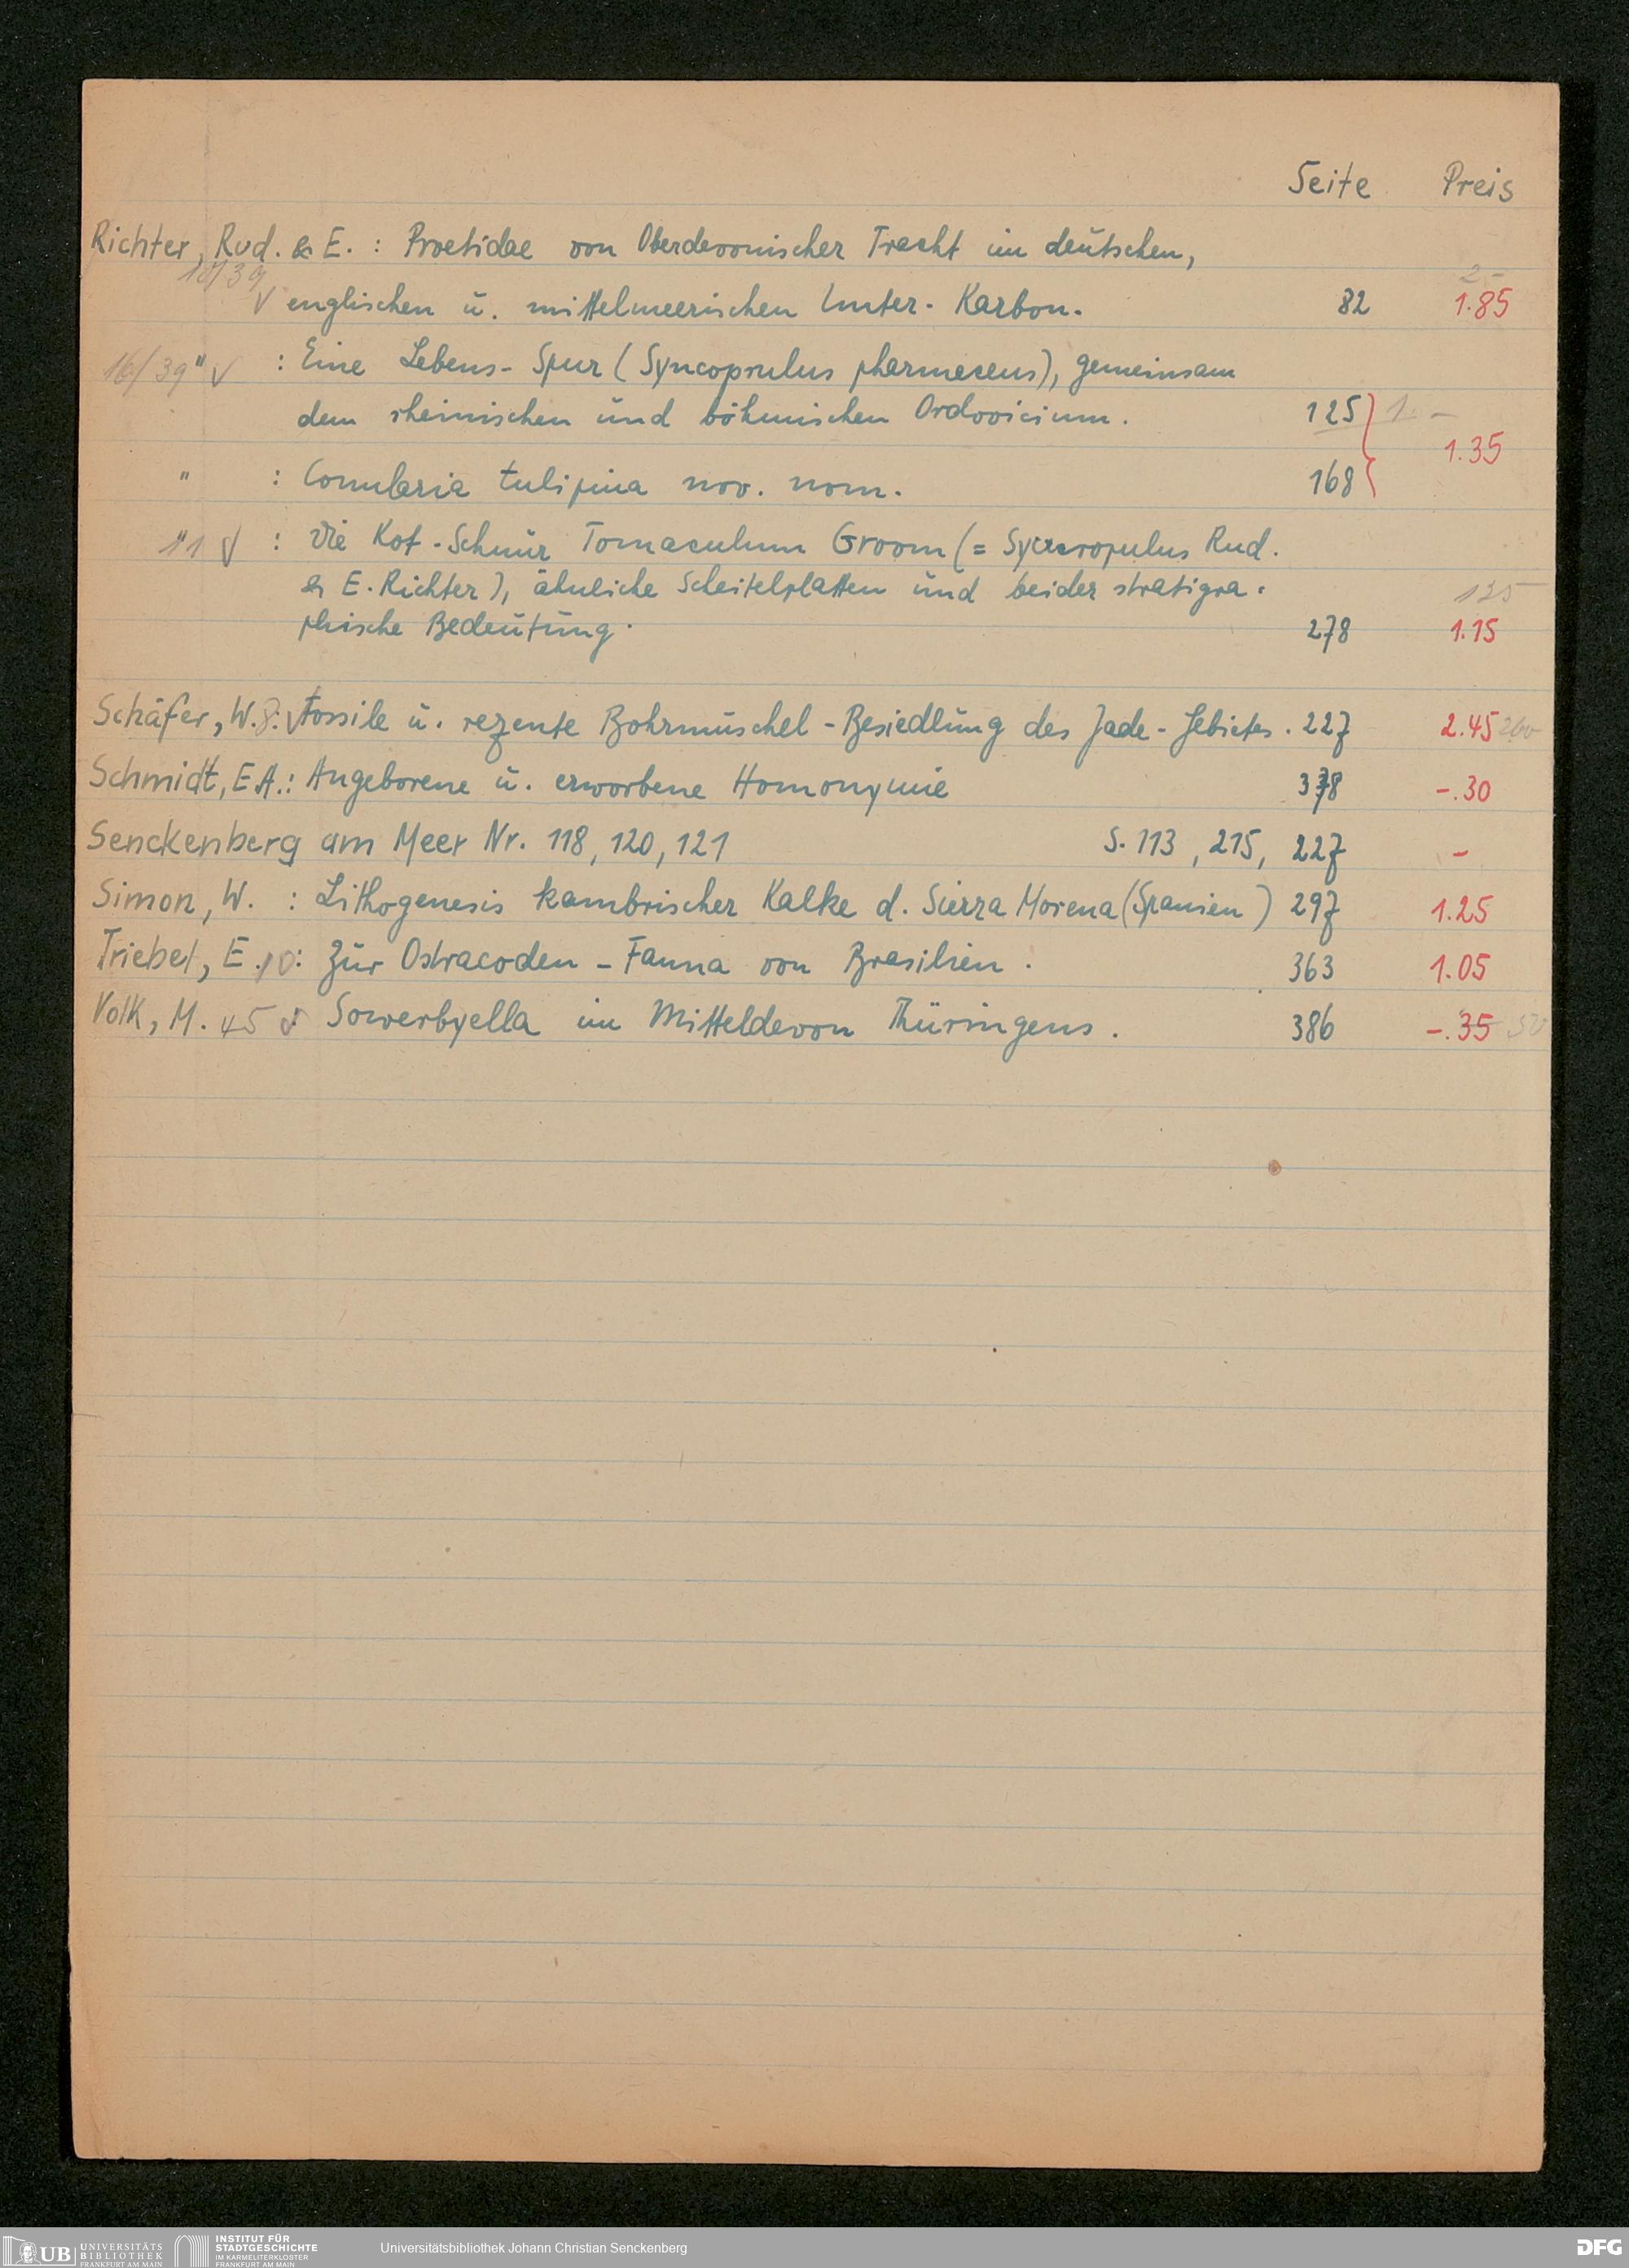 Seite Preis
Richter, Rud. & E. : Proetidae von Oberdevonischer Tracht im deutschen,
2-
√ englischen u. mittelmeerischen Unter-Karbon. 82 1.85
16/39 " √ : Eine Lebens-Spur (Syncoprulus pharmaceus), gemeinsam
dem rheinischen und böhmischen Ordovicium. 125 1.-
1.35
" : Conularia tulipina nov. nom. 168
" 11 √ : Die Kot-Schnur Tomaculum Groom (= Syncropulus Rud.
& E. Richter), ähnliche Scheitelplatten und beider stratigra-
135
phische Bedeutung. 278 1.15
Schäfer, W. 8: √ Fossile u. rezente Bohrmuschel-Besiedlung des Jade-Gebietes. 227 2.45 260
Schmidt, E.A.: Angeborene u. erworbene Homonymie 378 -.30
Senckenberg am Meer Nr. 118, 120, 121 S. 113, 215, 227 -
Simon, W. : Lithogenesis kambrischer Kalke d. Sierra Morena (Spanien) 297 1.25
Triebel, E. 10: Zur Ostracoden-Fauna von Brasilien. 363 1.05
Volk, M. 45 √ Sowerbyella im Mitteldevon Thüringens. 386 -.35 50
UB UNIVERSITÄTS
BIBLIOTHEK
FRANKFURT AM MAIN
INSTITUT FÜR
STADTGESCHICHTE
IM KARMELITERKLOSTER
FRANKFURT AM MAIN
Universitätsbibliothek Johann Christian Senckenberg
DFG